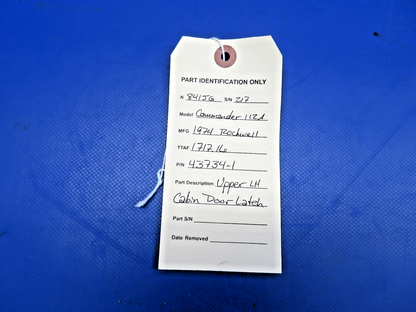 PART IDENTIFICATION ONLY
N 841JG S/N 217
Model Commander 112A
MFG 1974 Rockwell
TTAF 1717.16
P/N 43734-1
Part Description Upper LH
Cabin Door Latch
Part S/N
Date Removed